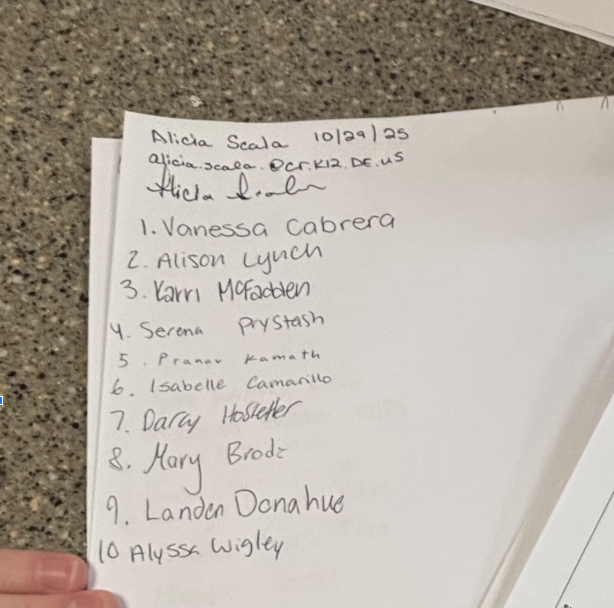 Alicia Scala 10/29/25
alicia.scala.@cr.K12.DE.US
Alicia Scala
1. Vanessa Cabrera
2. Alison Lynch
3. Karri McFadden
4. Serena Prystash
5. Pranav Kamath
6. Isabelle Camarillo
7. Darcy Hostetter
8. Mary
9. Landen Donahue
10 Alyssa Wigley